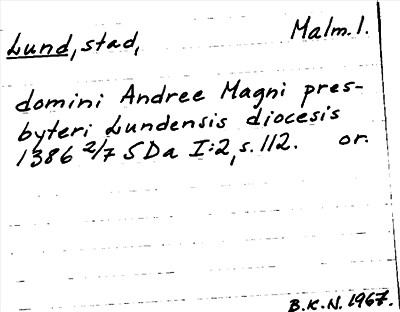 Lund, stad, Malm. 1.
domini Andree Magni pres-
byteri Lundensis diocesis
1386 2/7 SDa I:2, s. 112. or.
B.K.N. 1967.